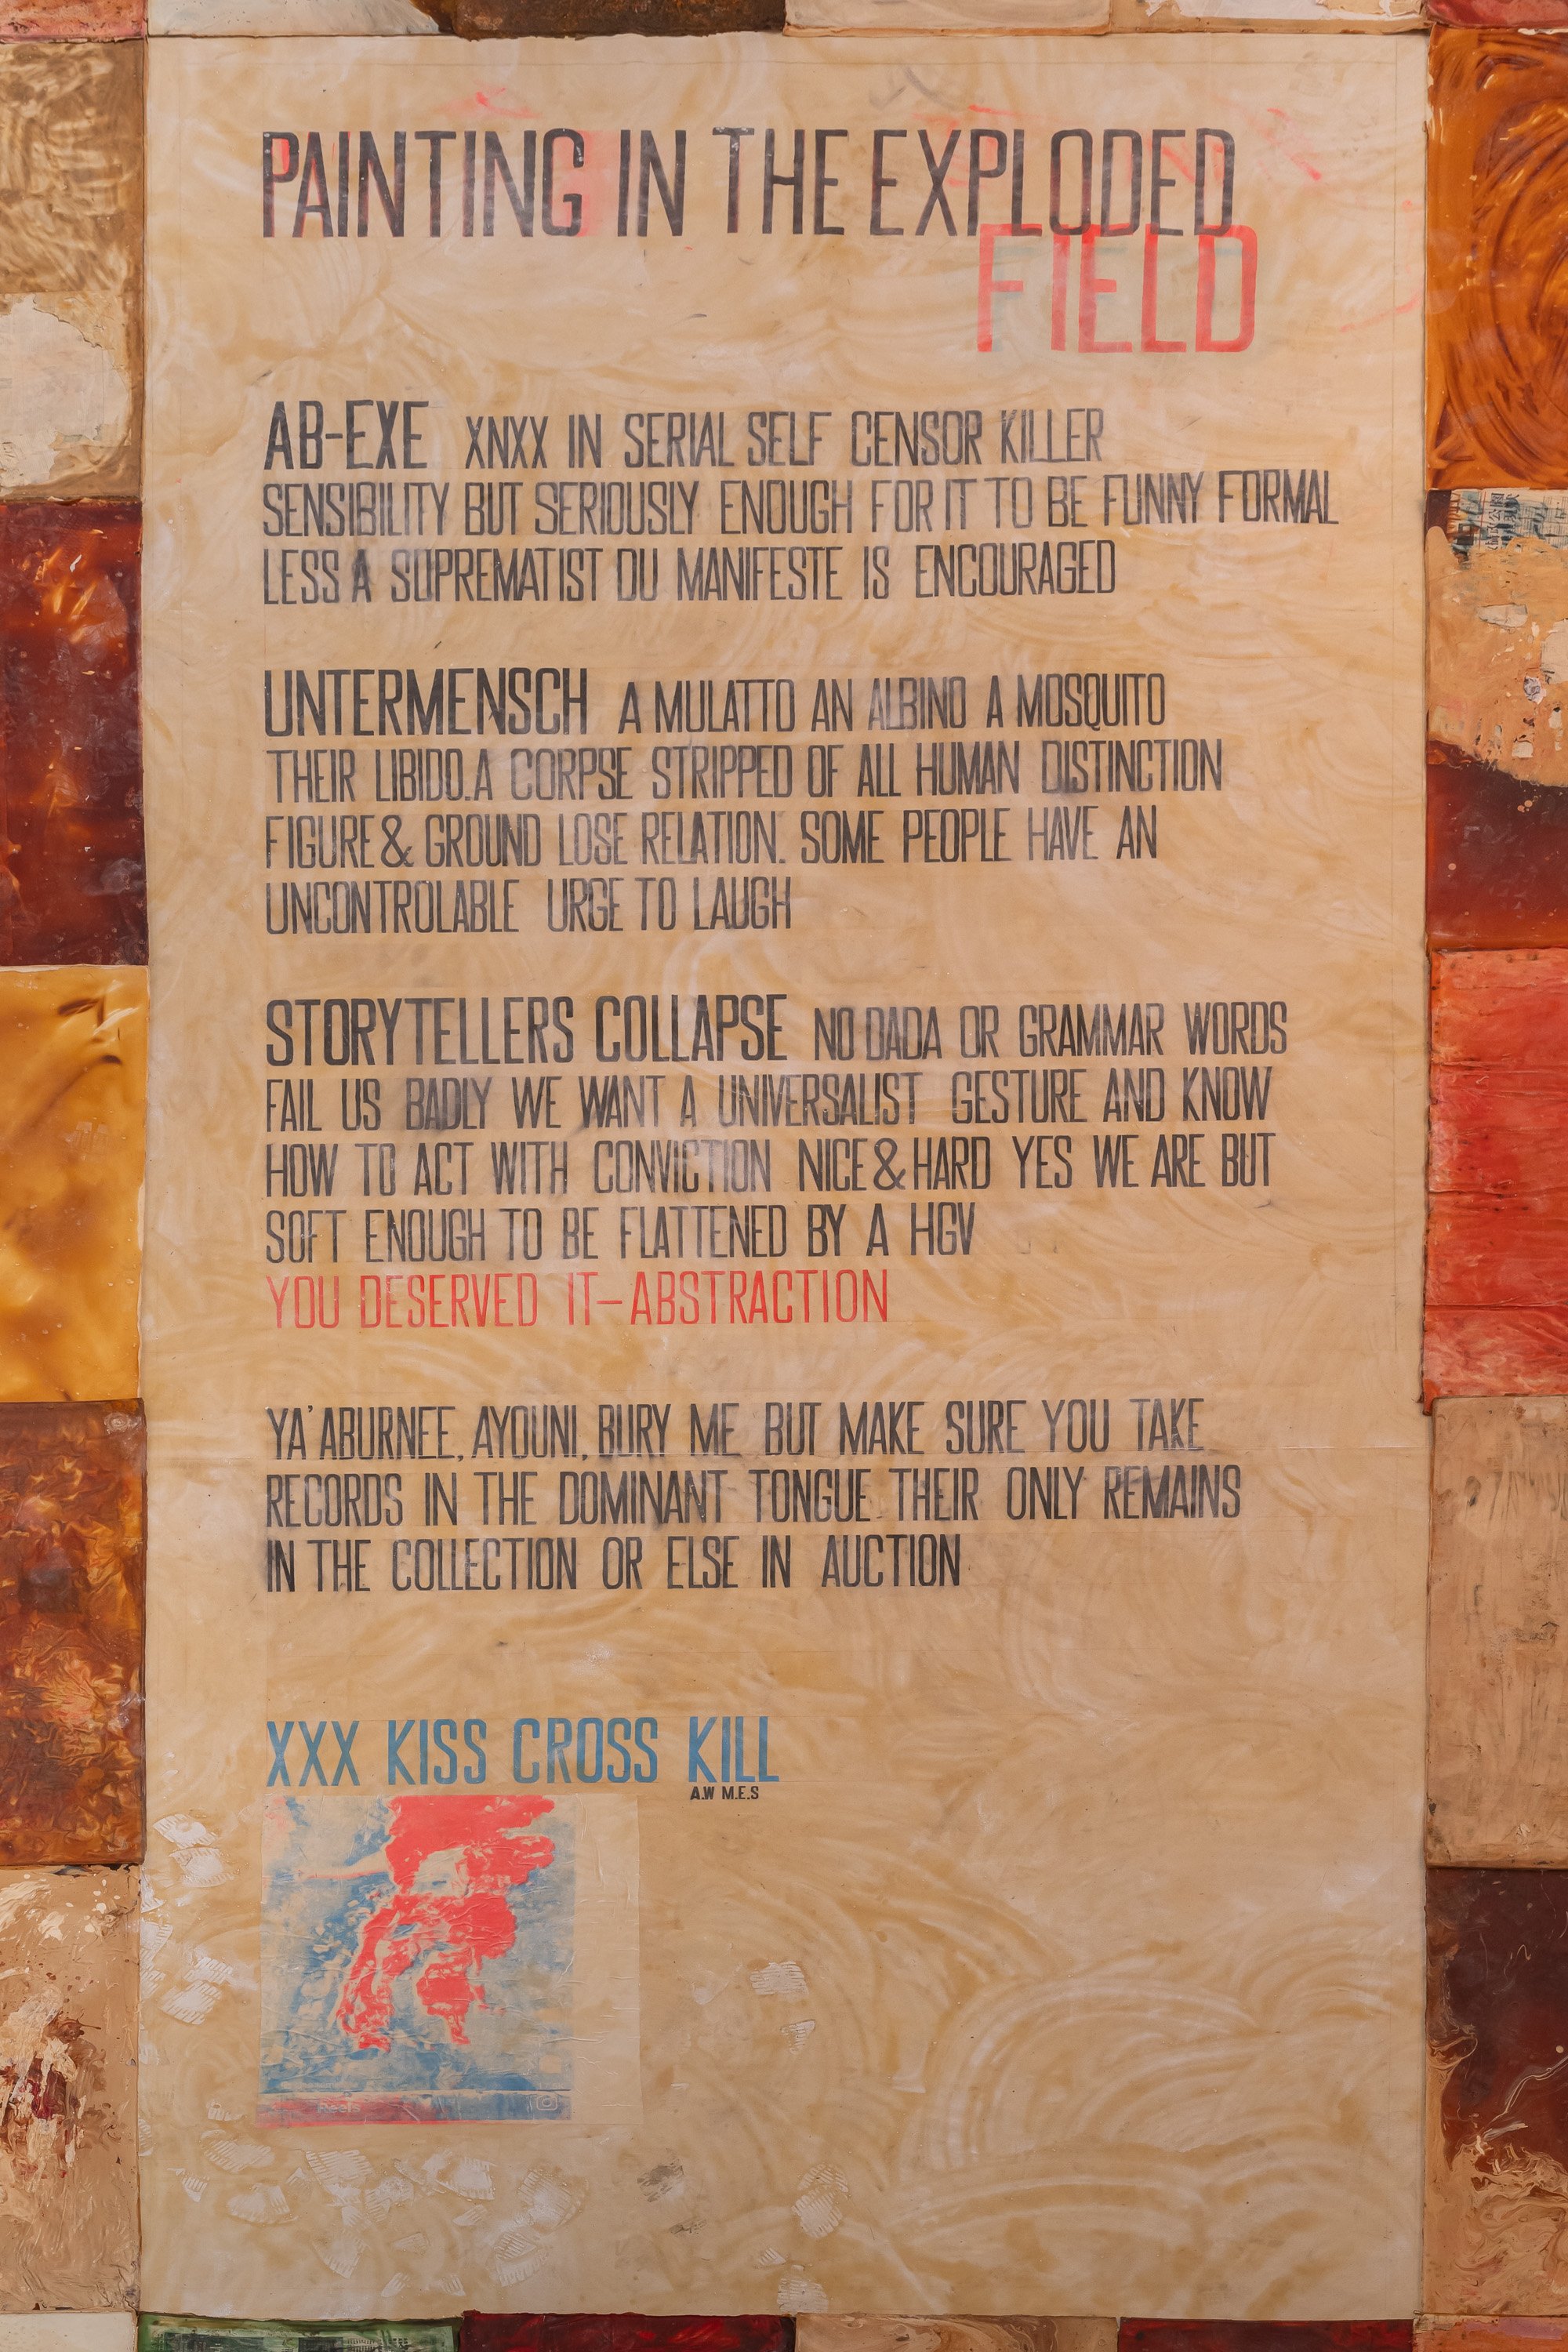 PAINTING IN THE EXPLODED
FIELD
AB-EXE XNXX IN SERIAL SELF CENSOR KILLER
SENSIBILITY BUT SERIOUSLY ENOUGH FOR IT TO BE FUNNY FORMAL
LESS A SUPREMATIST DU MANIFESTE IS ENCOURAGED
UNTERMENSCH A MULATTO AN ALBINO A MOSQUITO
THEIR LIBIDO.A CORPSE STRIPPED OF ALL HUMAN DISTINCTION
FIGURE & GROUND LOSE RELATION. SOME PEOPLE HAVE AN
UNCONTROLABLE URGE TO LAUGH
STORYTELLERS COLLAPSE NO DADA OR GRAMMAR WORDS
FAIL US BADLY WE WANT A UNIVERSALIST GESTURE AND KNOW
HOW TO ACT WITH CONVICTION NICE & HARD YES WE ARE BUT
SOFT ENOUGH TO BE FLATTENED BY A HGV
YOU DESERVED IT-ABSTRACTION
YA'ABURNEE, AYOUNI, BURY ME BUT MAKE SURE YOU TAKE
RECORDS IN THE DOMINANT TONGUE THEIR ONLY REMAINS
IN THE COLLECTION OR ELSE IN AUCTION
XXX KISS CROSS KILL
A.W M.E.S
Reels